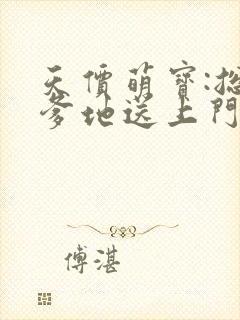 天價萌寶:總
爹地送上門
傅湛